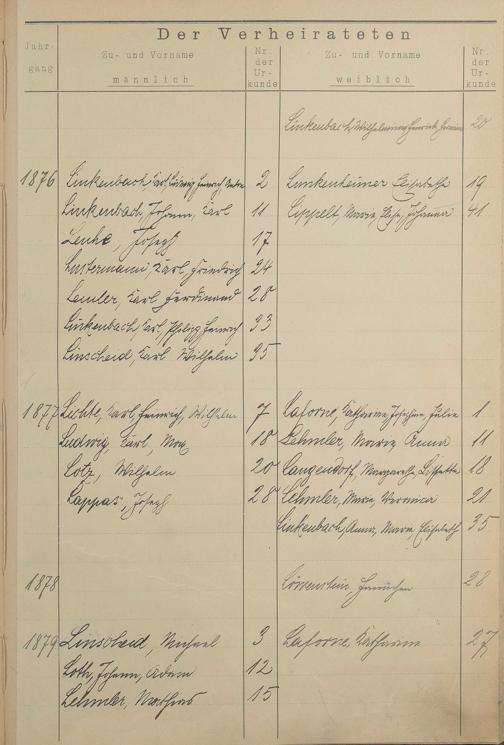 Der Verheirateten
Jahr- Zu- und Vorname Nr. Zu- und Vorname Nr.
gang der der
Ur- Ur-
männlich kunde weiblich kunde
Linkenbach, Wilhelmine, Henriette 20
1876 Linkenbach, Karl, Ludwig, Heinrich 2 Lunkenheimer Elisabetha 19
Linkenbach, Johann, Karl 11 Lippelt, Maria, Elise, Johanna 41
Lenke, Joseph 17
Lustermann, Karl, Friedrich 24
Lemler, Karl Ferdinand 28
Linkenbach, Karl, Philipp Heinrich 33
Linscheid, Karl Wilhelm 35
1877 Lichte, Karl Heinrich, Wilhelm 7 Laforne, Katharina Josephine, Julie 1
Ludwig, Karl, Max 18 Lehmler, Maria Anna 11
Lotz, Wilhelm 20 Langendorf, Margaretha, Lisette 18
Lappas, Joseph 28 Lehmler, Maria, Veronica 21
Linkenbach, Anna, Maria, Elisabeth 35
1878 Löwenstein, 28
1879 Linscheid, Michael 3 Laforne, Katharina 27
Loth, Johann, Adam 12
Lehmler, Mathias 15